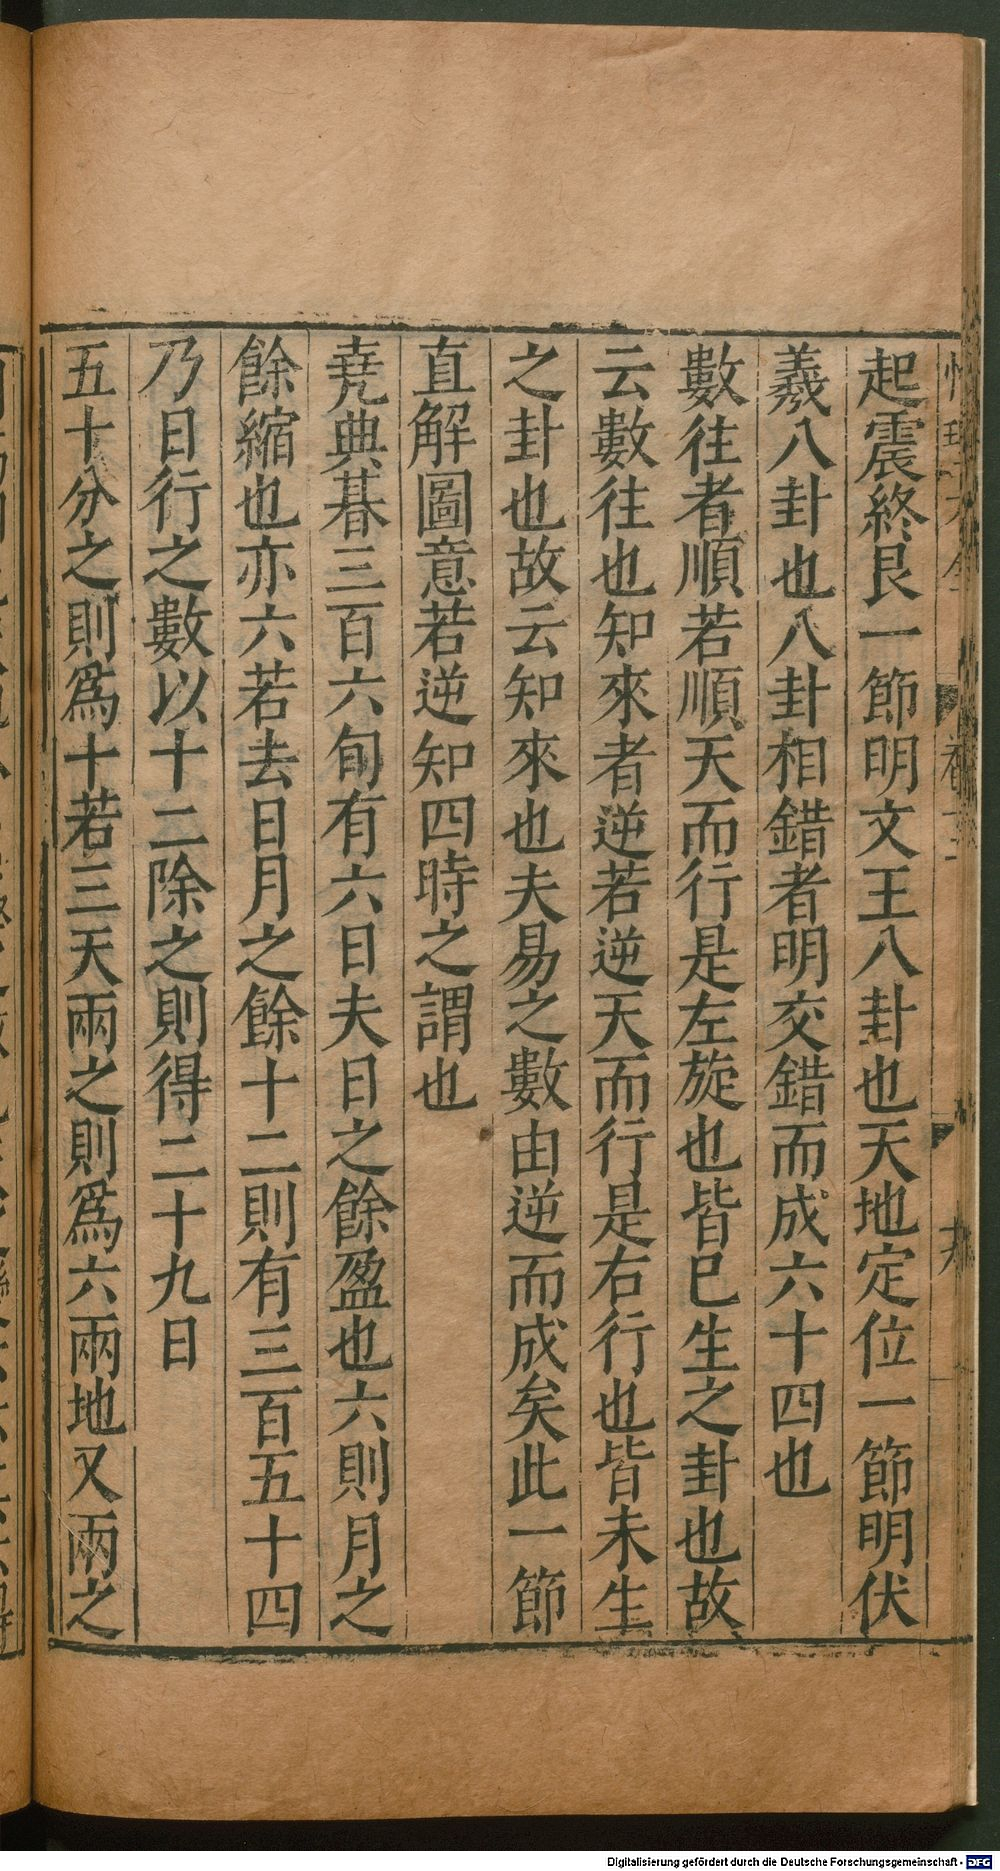 起震終艮一節明文王八卦也天地定位一節明伏
羲八卦也八卦相錯者明交錯而成六十四也
數往者順若順天而行是左旋也皆已生之卦也故
云數往也知來者逆若逆天而行是右行也皆未生
之卦也故云知來也夫易之數由逆而成矣此一節
直解圖意若逆知四時之謂也
堯典朞三百六旬有六日夫日之餘盈也六則月之
餘縮也亦六若去日月之餘十二則有三百五十四
乃日行之數以十二除之則得二十九日
五十分之則爲十若三天兩之則爲六兩地又兩之
Digitalisierung gefördert durch die Deutsche Forschungsgemeinschaft - DFG